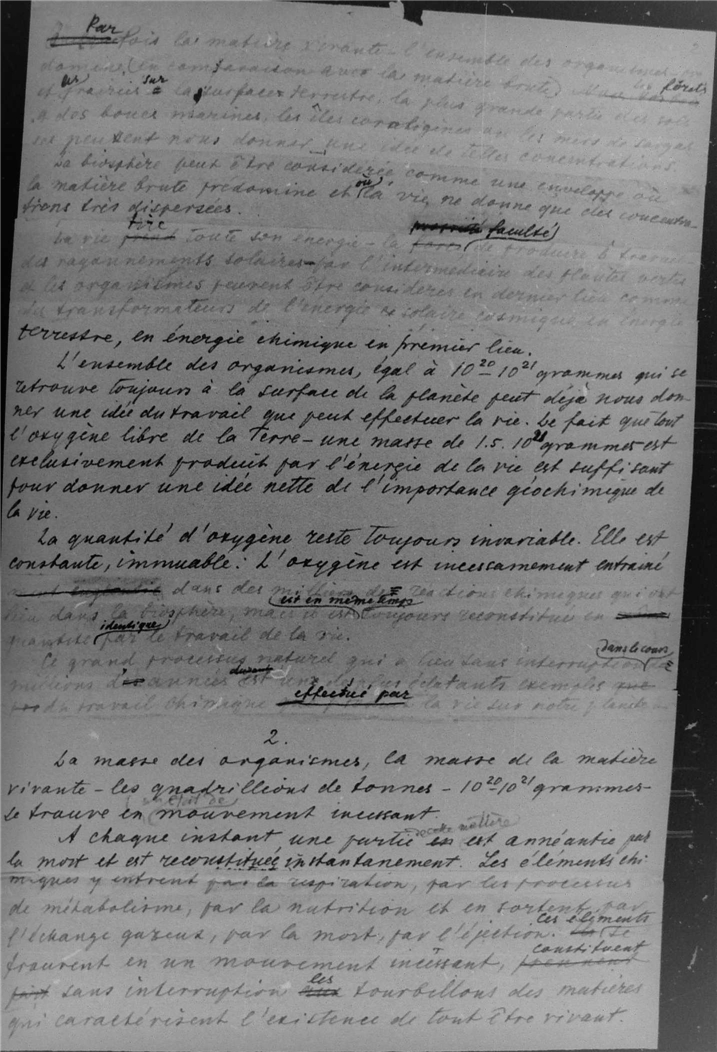 2
Par
fois la matière vivante – l'ensemble des organismes
domine (en comparaison avec la matière brute).
forêts
et prairies sur la surface terrestre, la plus grande partie des
des boues marines, les îles coraligènes ou les mers de sargas
ses peuvent nous donner une idée de telles concentrations.
La biosphère peut être considérée comme une enveloppe où
la matière brute prédomine et où la vie ne donne que des concentra-
tions très dispersées.
tire faculté
La vie toute son énergie – la de produire le travail
des rayonnements solaires – par l'intermédiaire des plantes vertes
et les organismes peuvent être considérés en dernier lieu comme
des transformateurs de l'énergie solaire cosmique en énergie
terrestre, en énergie chimique en premier lieu.
L'ensemble des organismes, égal à 10²⁰–10²¹ grammes qui se
retrouve toujours à la surface de la planète peut déjà nous don-
ner une idée du travail que peut effectuer la vie. Le fait que tout
l'oxygène libre de la Terre – une masse de 1.5. 10²¹ grammes est
exclusivement produit par l'énergie de la vie est suffisant
pour donner une idée nette de l'importance géochimique de
la vie.
La quantité d'oxygène reste toujours invariable. Elle est
constante, immuable. L'oxygène est incessamement entrainé
dans des réactions chimiques qui ont
est en même temps
lieu dans la biosphère, mais toujours reconstituée en
identique
quantité par le travail de la vie.
dans le cours
Ce grand processus naturel qui a lieu sans interruption
millions d'années est un des plus éclatants exemples
effectué par
du travail chimique la vie sur notre planète
2.
La masse des organismes, la masse de la matière
vivante – les quadrillions de tonnes – 10²⁰ 10²¹ grammes –
un état de
se trouve en mouvement incessant.
cette matière
A chaque instant une partie est annéantie par
la mort et est reconstituée instantanement. Les éléments chi-
miques y entrent par la respiration, par les processus
de métabolisme, par la nutrition et en sortent par
Ces éléments
l'échange gazeux, par la mort, par l'éjection. se
constituent
trouvent en un mouvement incessant,
les
sans interruption tourbillons des matières
qui caractérisent l'existence de tout être vivant.